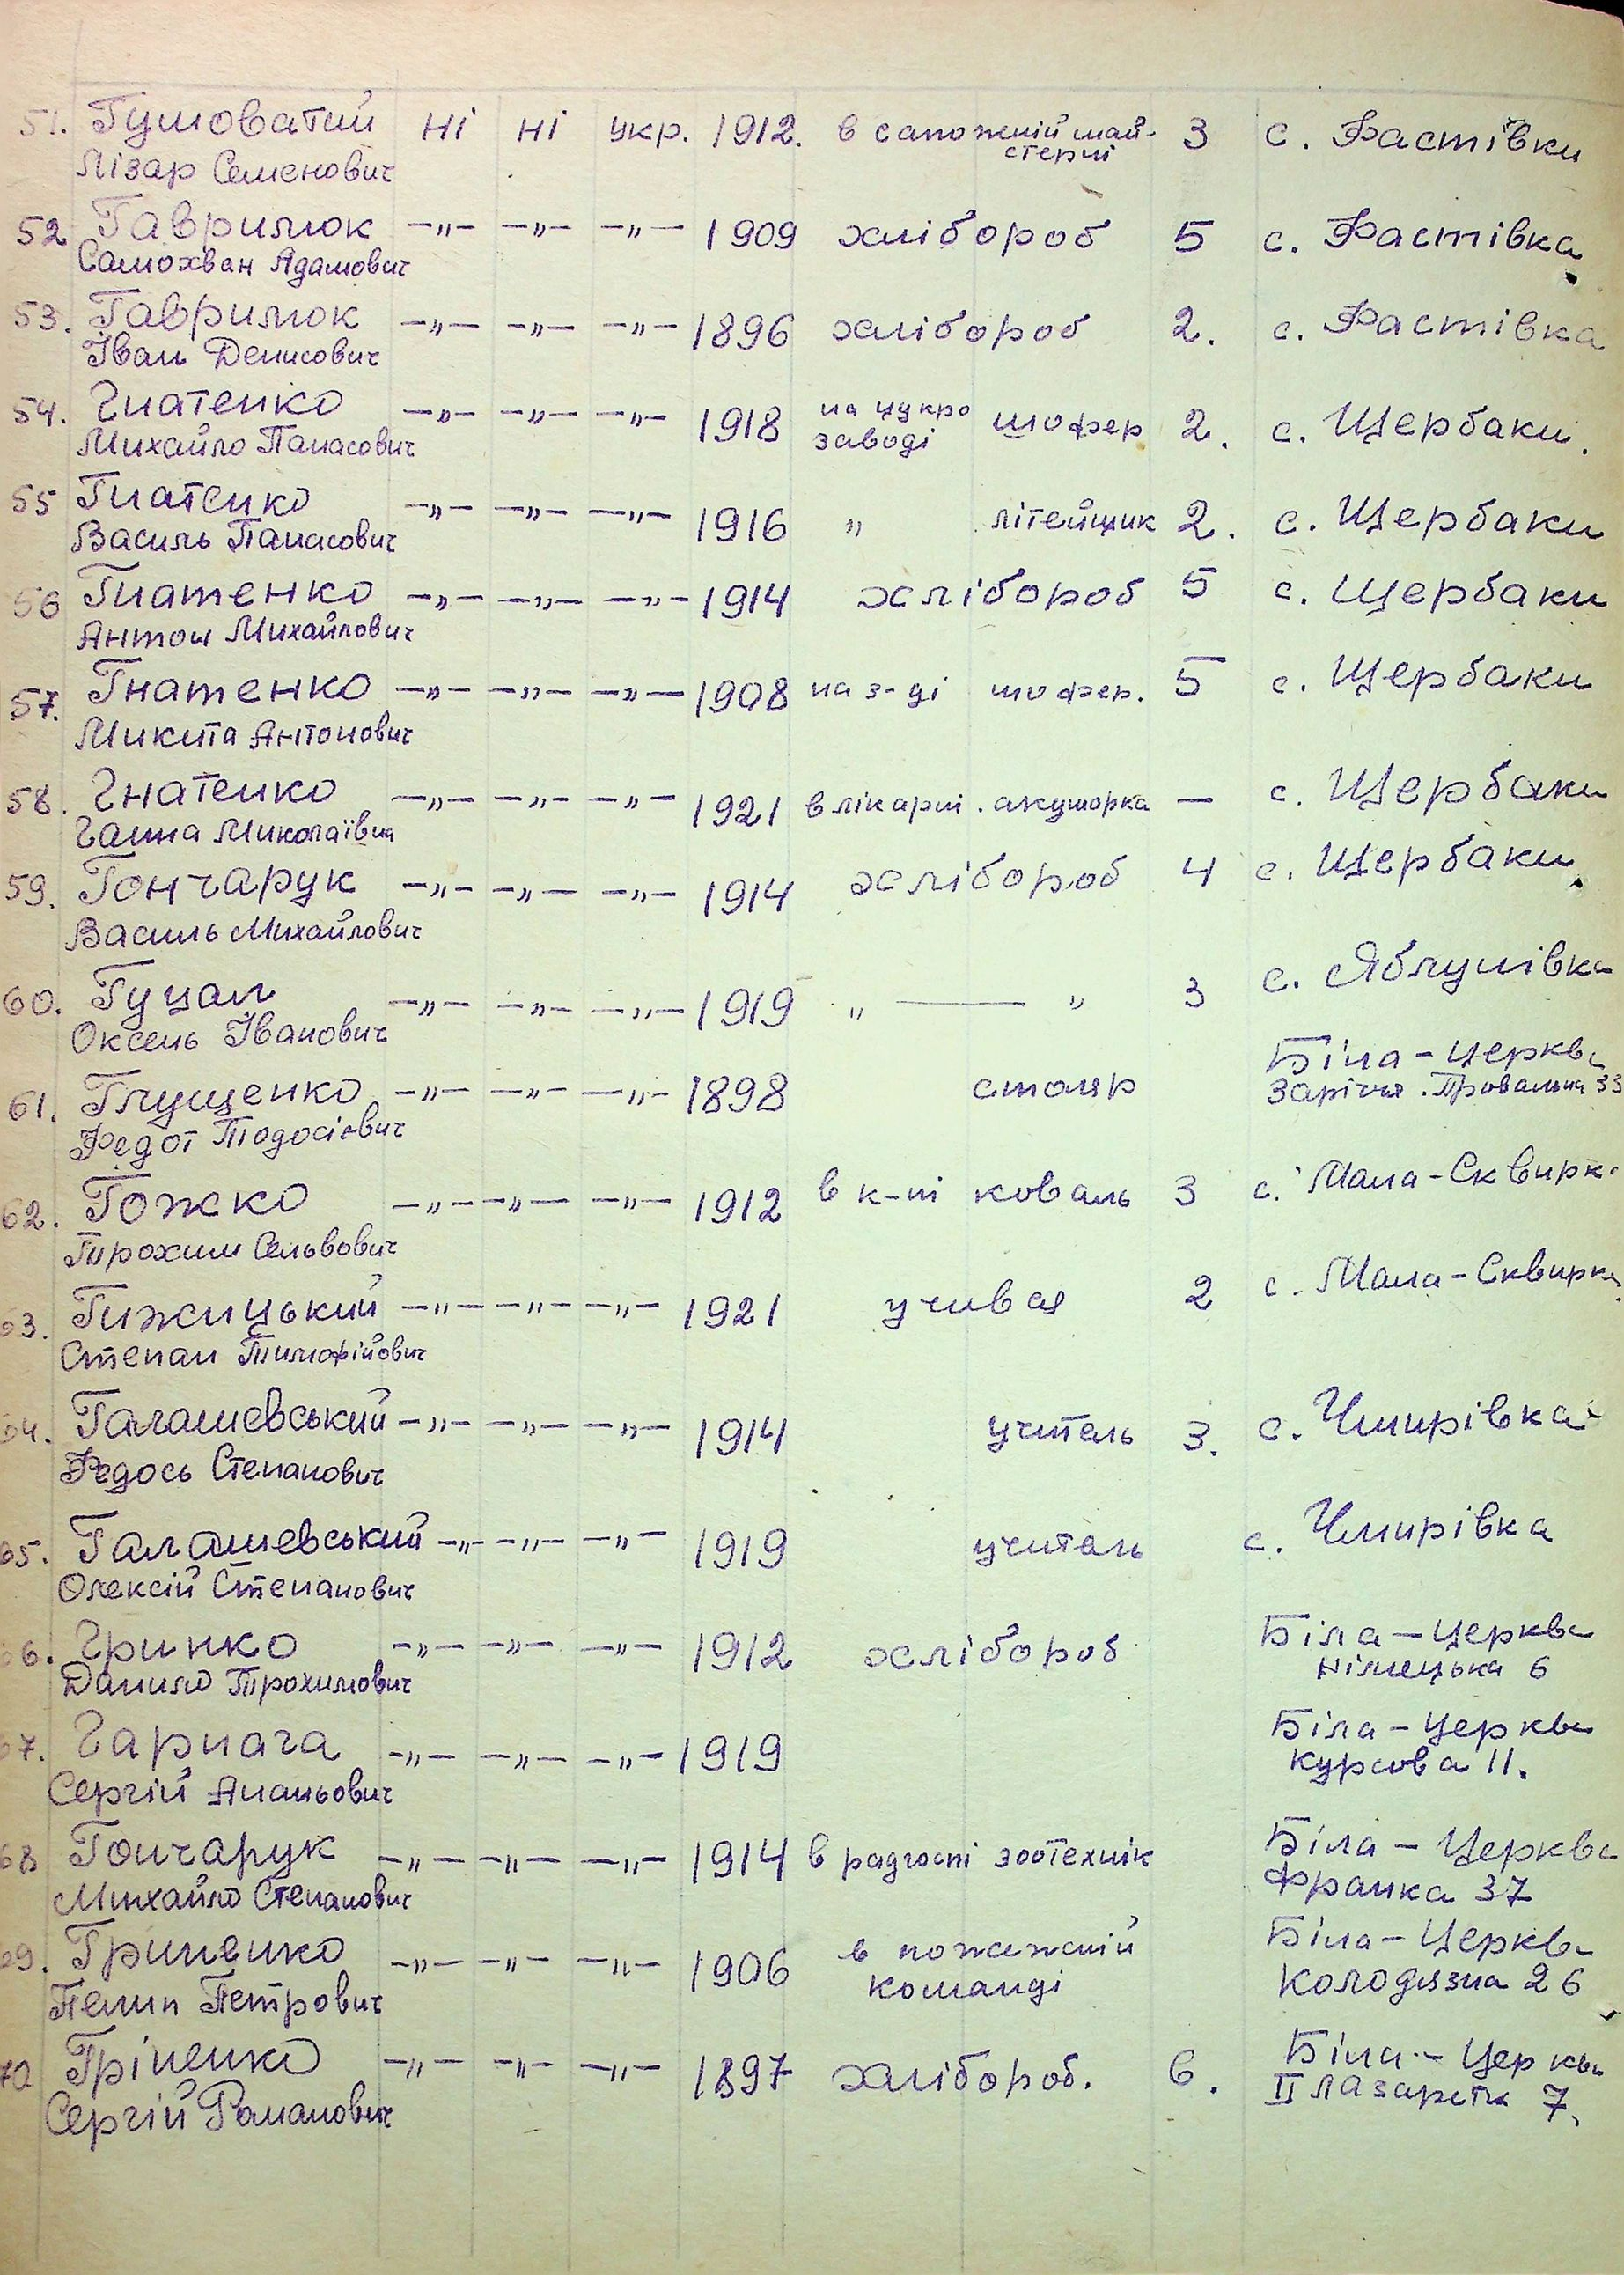 51. Гумоватий ні ні укр. 1912. в сапожній май- 3 с. Фастівки
Лізар Семенович стерні
52 Гаврилюк —„— —„— —„— 1909 хлібороб 5 с. Фастівка
Самохван Адамович
53. Гаврилюк —„— —„— —„— 1896 хлібороб 2. с. Фастівка
Іван Денисович
54. Гнатенко —„— —„— —„— 1918 на цукро шофер 2. с. Щербаки.
Михайло Панасович заводі
55 Гнатенко —„— —„— —„— 1916 „ літейщик 2. с. Щербаки
Василь Панасович
56 Гнатенко —„— —„— —„— 1914 хлібороб 5 с. Щербаки
Антон Михайлович
57. Гнатенко —„— —„— —„— 1908 на з-ді шофер. 5 с. Щербаки
Микита Антонович
58. Гнатенко —„— —„— —„— 1921 в лікарні. акушорка — с. Щербаки
Ганна Миколаївна
59. Гончарук —„— —„— —„— 1914 хлібороб 4 с. Щербаки
Василь Михайлович
60. Гуцал —„— —„— —„— 1919 „ —— „ 3 с. Яблунівка
Оксень Іванович
61. Глущенко —„— —„— —„— 1898 столяр Біла-Церква
Федот Тодосієвич Заріччя. Провальна 33
62. Гожко —„— —„— —„— 1912 в к-пі коваль 3 с. Мала-Сквирк
Трохим Сельвович
63. Гижицький —„— —„— —„— 1921 учився 2 с. Мала-Сквирка
Степан Тимофійович
64. Галашевський —„— —„— —„— 1914 учитель 3. с. Чмирівка
Федось Степанович
65. Галашевський —„— —„— —„— 1919 учитель с. Чмирівка
Олексій Степанович
66. Гринко —„— —„— —„— 1912 хлібороб Біла-Церква
Данило Трохимович Німецька 6
67. Гарнага —„— —„— —„— 1919 Біла-Церква
Сергій Ананьович Курсова 11.
68 Гончарук —„— —„— —„— 1914 в радгоспі зоотехнік Біла-Церква
Михайло Степанович Франка 37
69. Гриненко —„— —„— —„— 1906 в пожежній Біла-Церква
Пелип Петрович команді Колодязна 26
70 Гріненко —„— —„— —„— 1897 хлібороб. 6. Біла-Церква
Сергій Романович II Лазаретна 7.